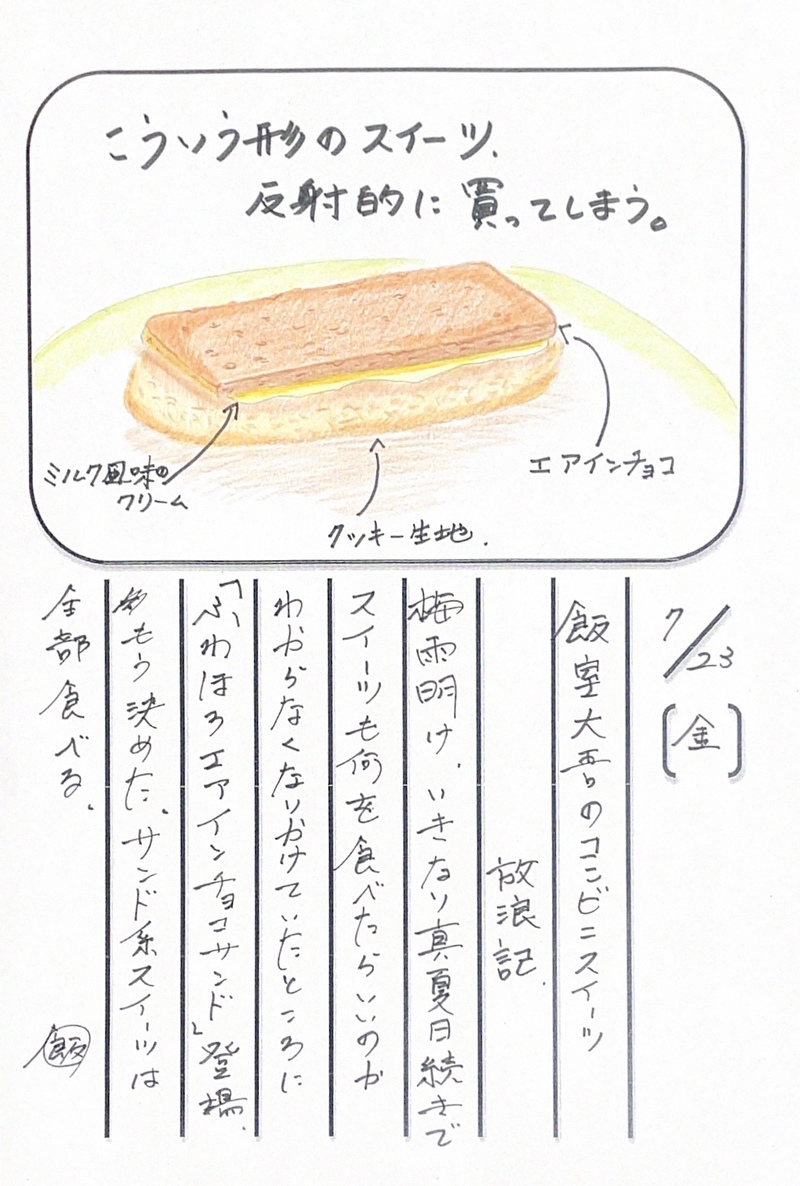 こういう形のスイーツ、
反射的に買ってしまう。
ミルク風味の
クリーム
クッキー生地.
エアインチョコ
7/23
[金]
飯室大吾のコンビニスイーツ
放浪記.
梅雨明け、いきなり真夏日続きで
スイーツも何を食べたらいいのか
わからなくなりかけていたところに
「ふわほろエアインチョコサンド」登場.
もう決めた、サンド系スイーツは
全部食べる、
飯